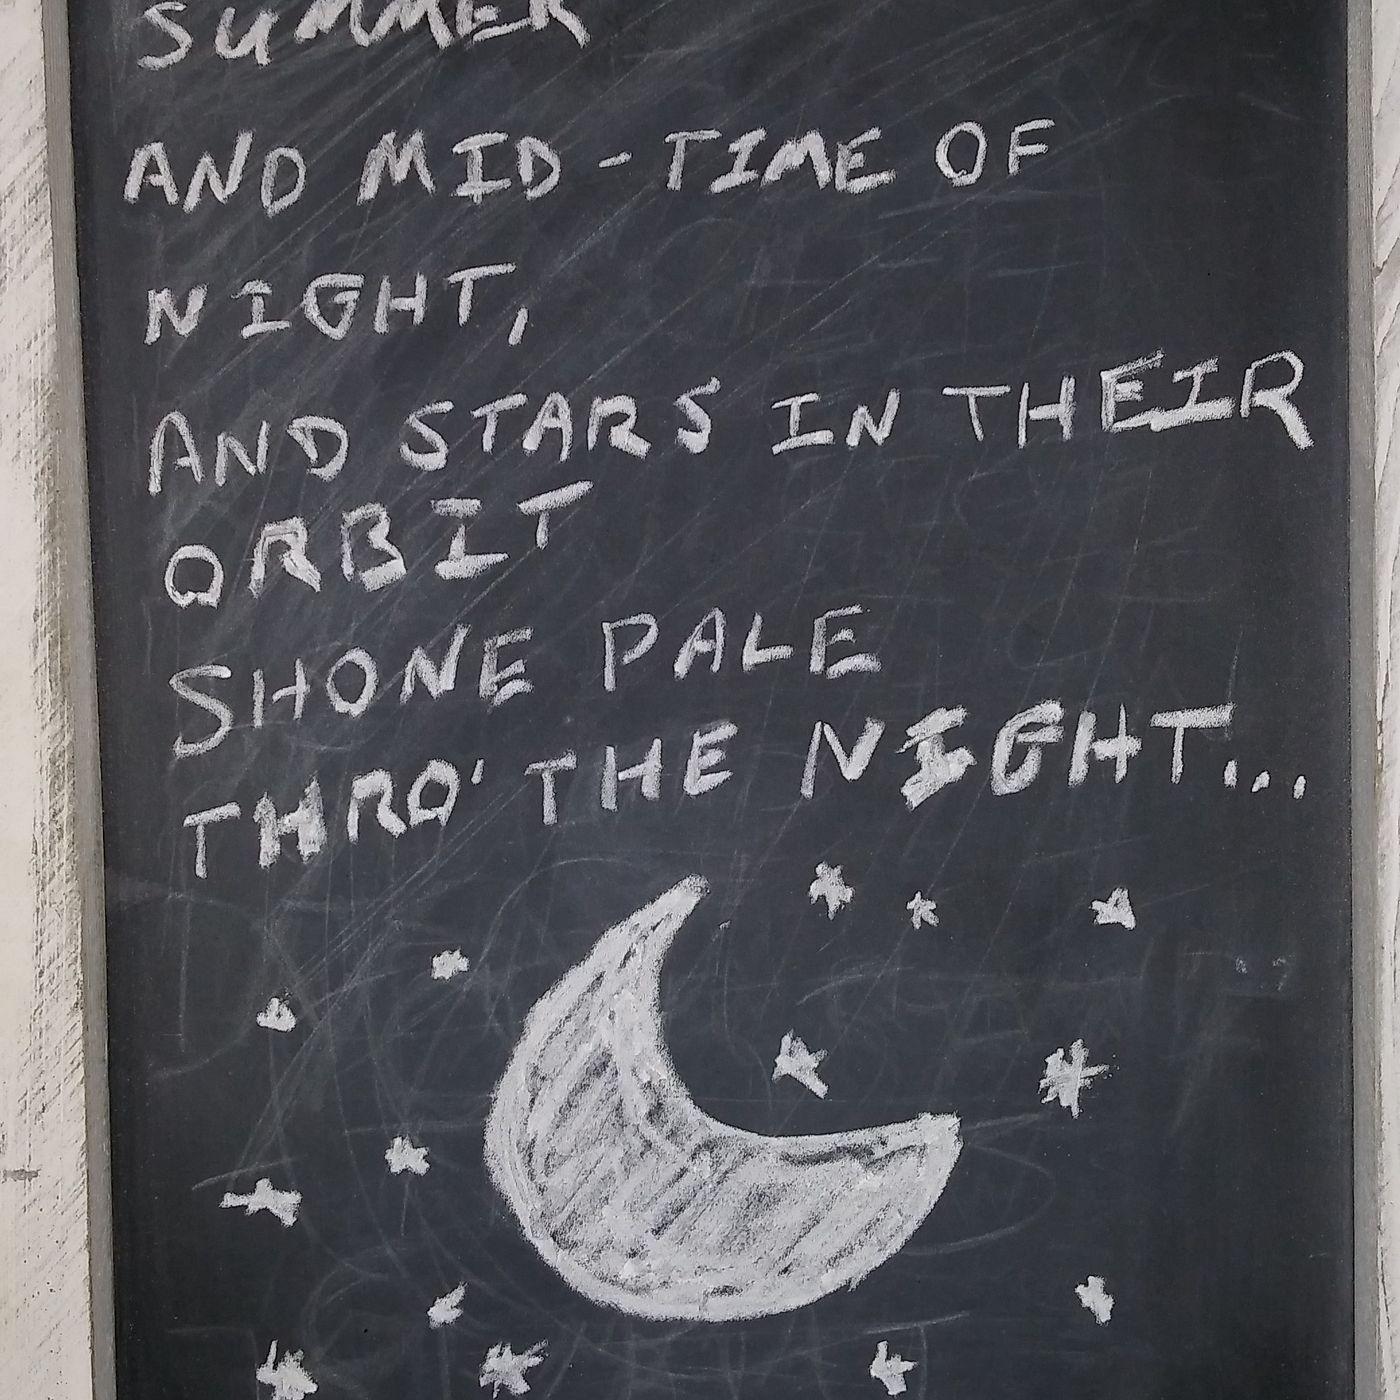 SUMMER
AND MID-TIME OF
NIGHT,
AND STARS IN THEIR
ORBIT
SHONE PALE
THRO' THE NIGHT...